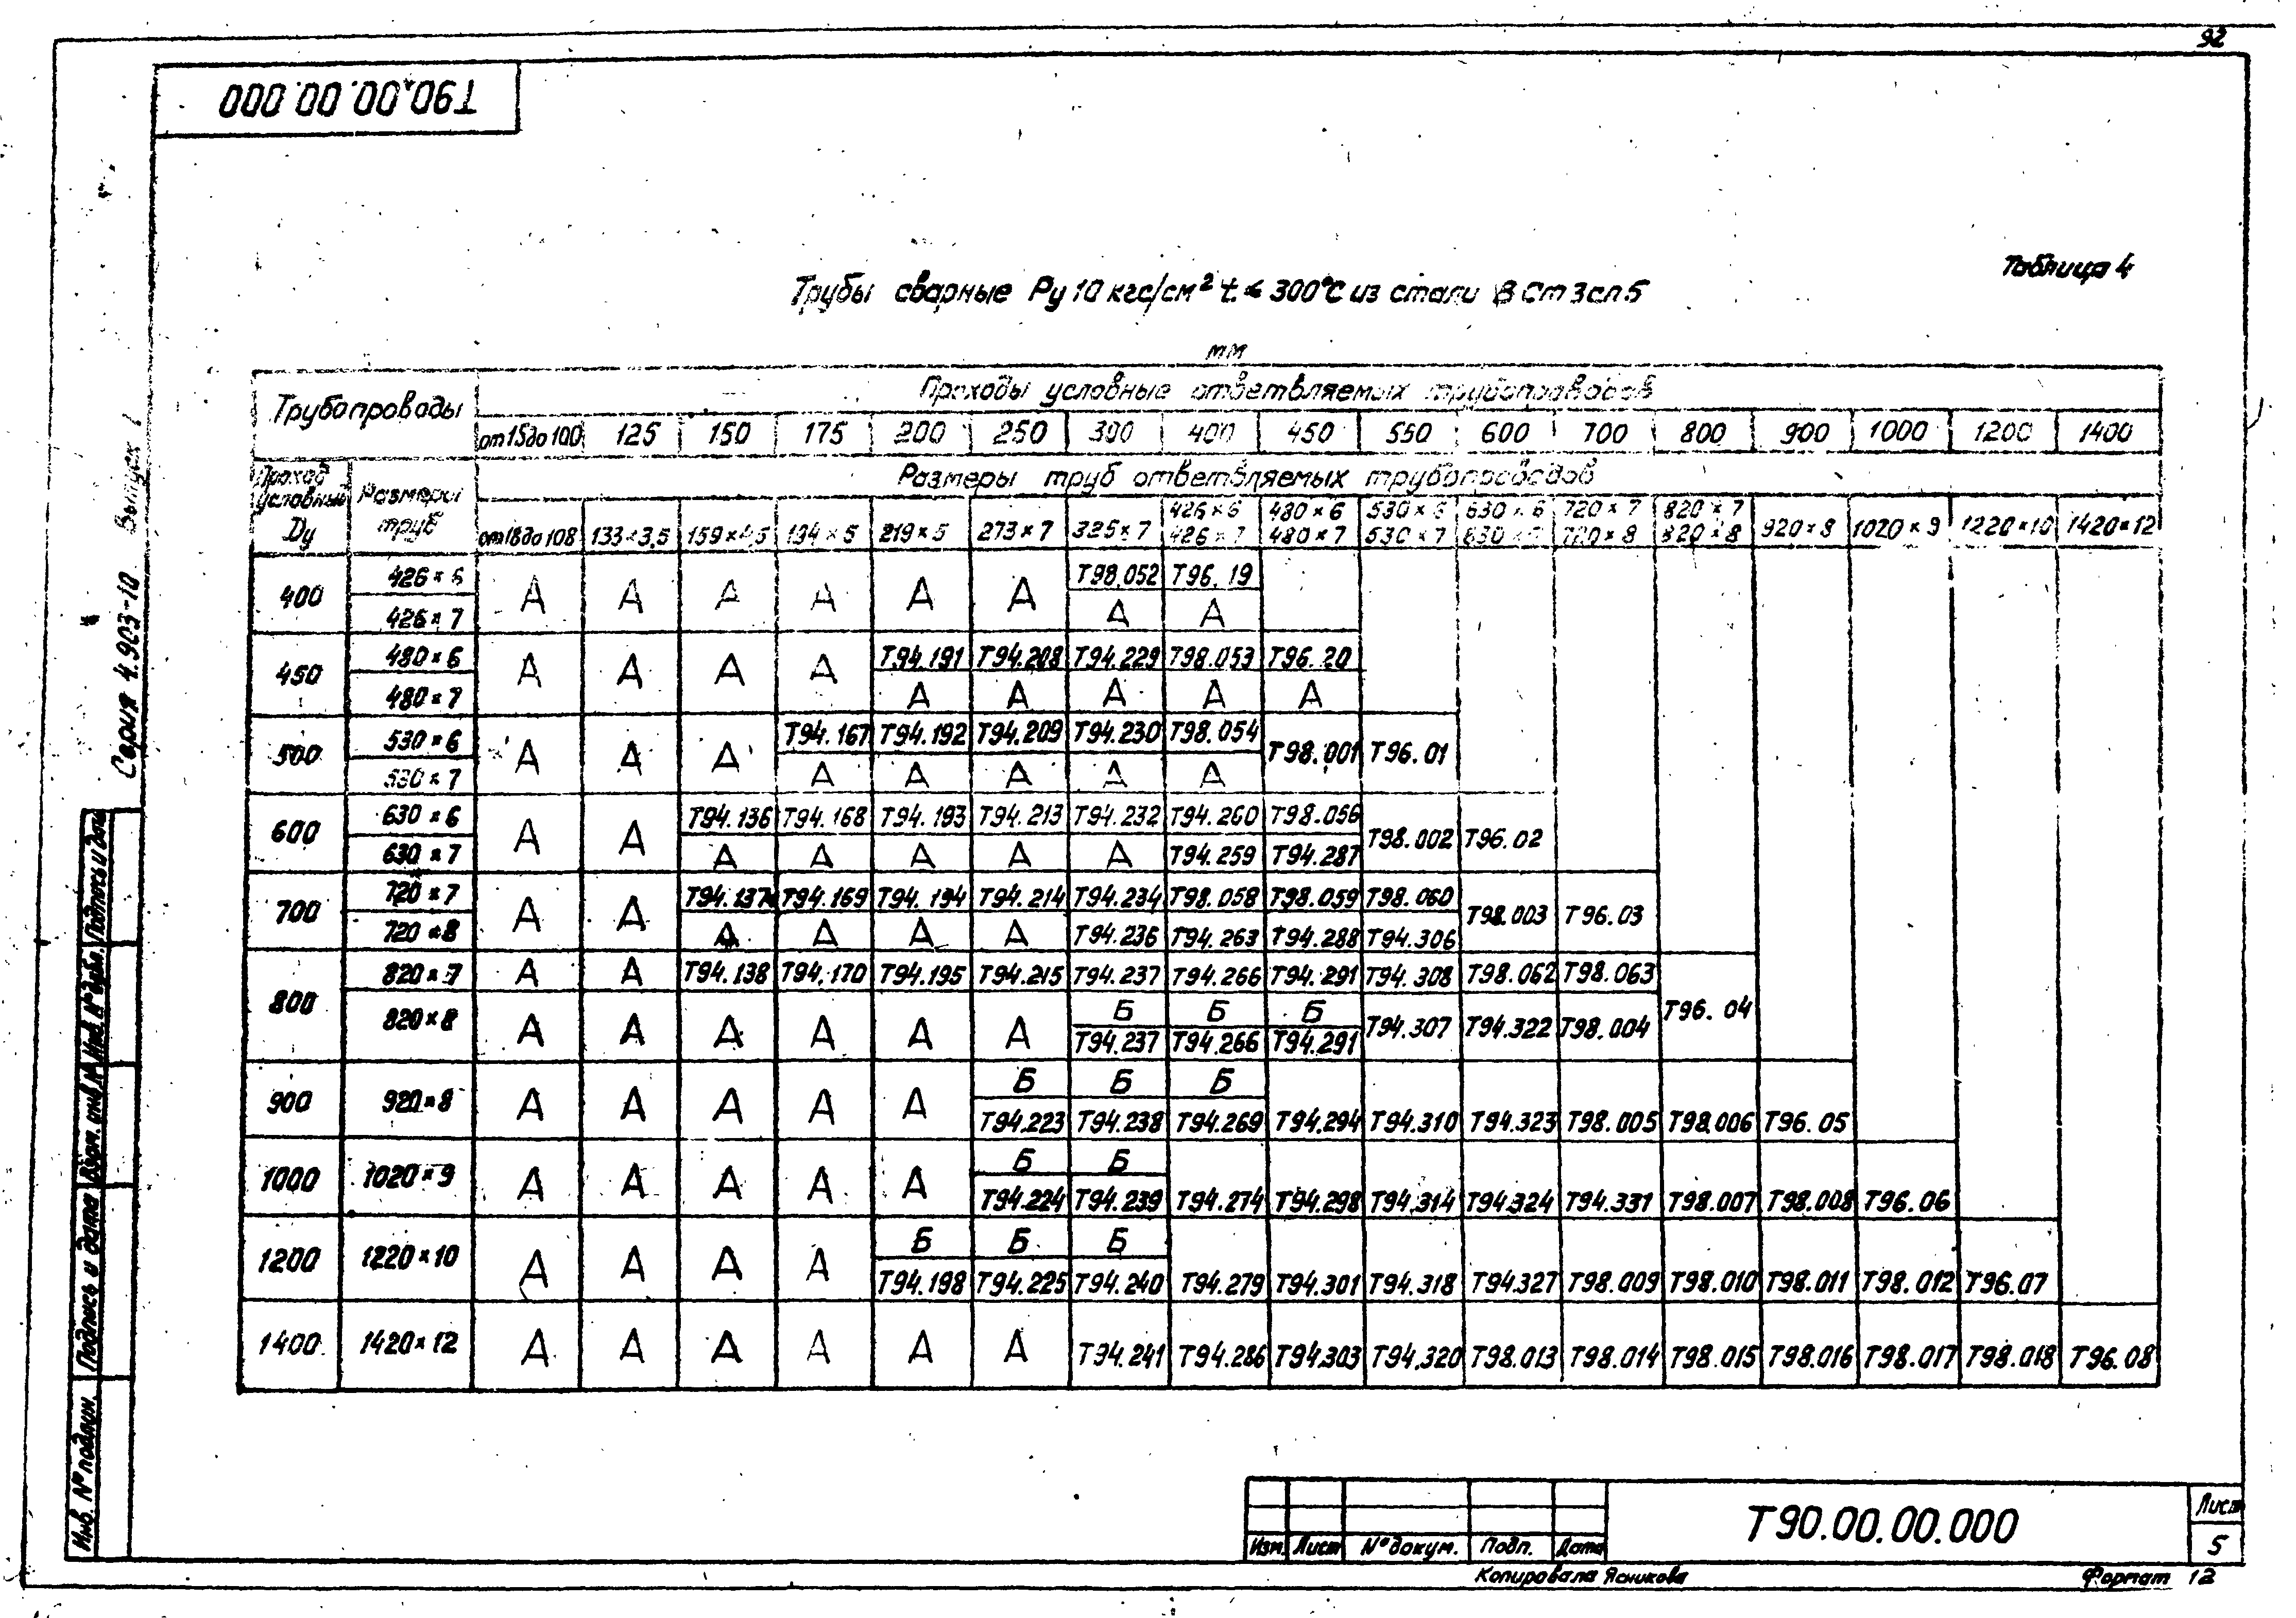 92
Т90.00.00.000
Таблица 4
Трубы сварные Ру 10 кгс/см² t ≤ 300°С из стали В Ст 3сп.5
мм
Трубопроводы
Проходы условные ответвляемых трубопроводов
от 15 до 100 125 150 175 200 250 300 400 450 550 600 700 800 900 1000 1200 1400
Проход условный Dу
Размеры труб
Размеры труб ответвляемых трубопроводов
426×6 480×6 530×6 630×6 720×7 820×7
от 18 до 108 133×3,5 159×4,5 194×5 219×5 273×7 325×7 426×7 480×7 530×7 630×7 720×8 820×8 920×8 1020×9 1220×10 1420×12
400 426×6 А А А А А А Т98.052 Т96.19
426×7 А А
450 480×6 А А А А Т94.191 Т94.208 Т94.229 Т98.053 Т96.20
480×7 А А А А А
500 530×6 А А А Т94.167 Т94.192 Т94.209 Т94.230 Т98.054 Т98.001 Т96.01
530×7 А А А А А
600 630×6 А А Т94.136 Т94.168 Т94.193 Т94.213 Т94.232 Т94.260 Т98.056 Т98.002 Т96.02
630×7 А А А А А Т94.259 Т94.287
700 720×7 А А Т94.137 Т94.169 Т94.194 Т94.214 Т94.234 Т98.058 Т98.059 Т98.060 Т98.003 Т96.03
720×8 А А А А Т94.236 Т94.263 Т94.288 Т94.306
800 820×7 А А Т94.138 Т94.170 Т94.195 Т94.215 Т94.237 Т94.266 Т94.291 Т94.308 Т98.062 Т98.063 Т96.04
820×8 А А А А А А Б Б Б Т94.307 Т94.322 Т98.004
Т94.237 Т94.266 Т94.291
900 920×8 А А А А А Б Б Б
Т94.223 Т94.238 Т94.269 Т94.294 Т94.310 Т94.323 Т98.005 Т98.006 Т96.05
1000 1020×9 А А А А А Б Б
Т94.224 Т94.239 Т94.274 Т94.298 Т94.314 Т94.324 Т94.331 Т98.007 Т98.008 Т96.06
1200 1220×10 А А А А Б Б Б
Т94.198 Т94.225 Т94.240 Т94.279 Т94.301 Т94.318 Т94.327 Т98.009 Т98.010 Т98.011 Т98.012 Т96.07
1400 1420×12 А А А А А А Т94.241 Т94.286 Т94.303 Т94.320 Т98.013 Т98.014 Т98.015 Т98.016 Т98.017 Т98.018 Т96.08
Серия 4.903-10 Выпуск 1
Инв. № подлин. Подпись и дата Взам. инв. № Инв. № дубл. Подпись и дата
Изм. Лист № докум. Подп. Дата
Т90.00.00.000
Лист
5
Копировала Ясникова
Формат 12